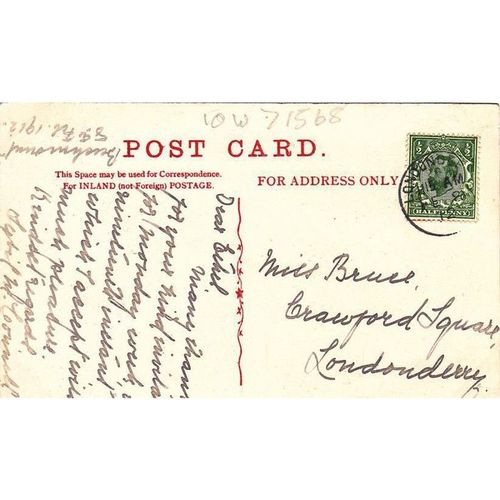 IOW 71568
POST CARD.
This Space may be used for Correspondence.
For INLAND (not Foreign) POSTAGE.
FOR ADDRESS ONLY
HALFPENNY
LONDOND
Feb. 1912.
Dear Ethel
Many than
for your kind invita
for Monday week,
instant
which I accept wit
much pleasure
Kindest regards
Miss Bruce,
Crawford Square
Londonderry.